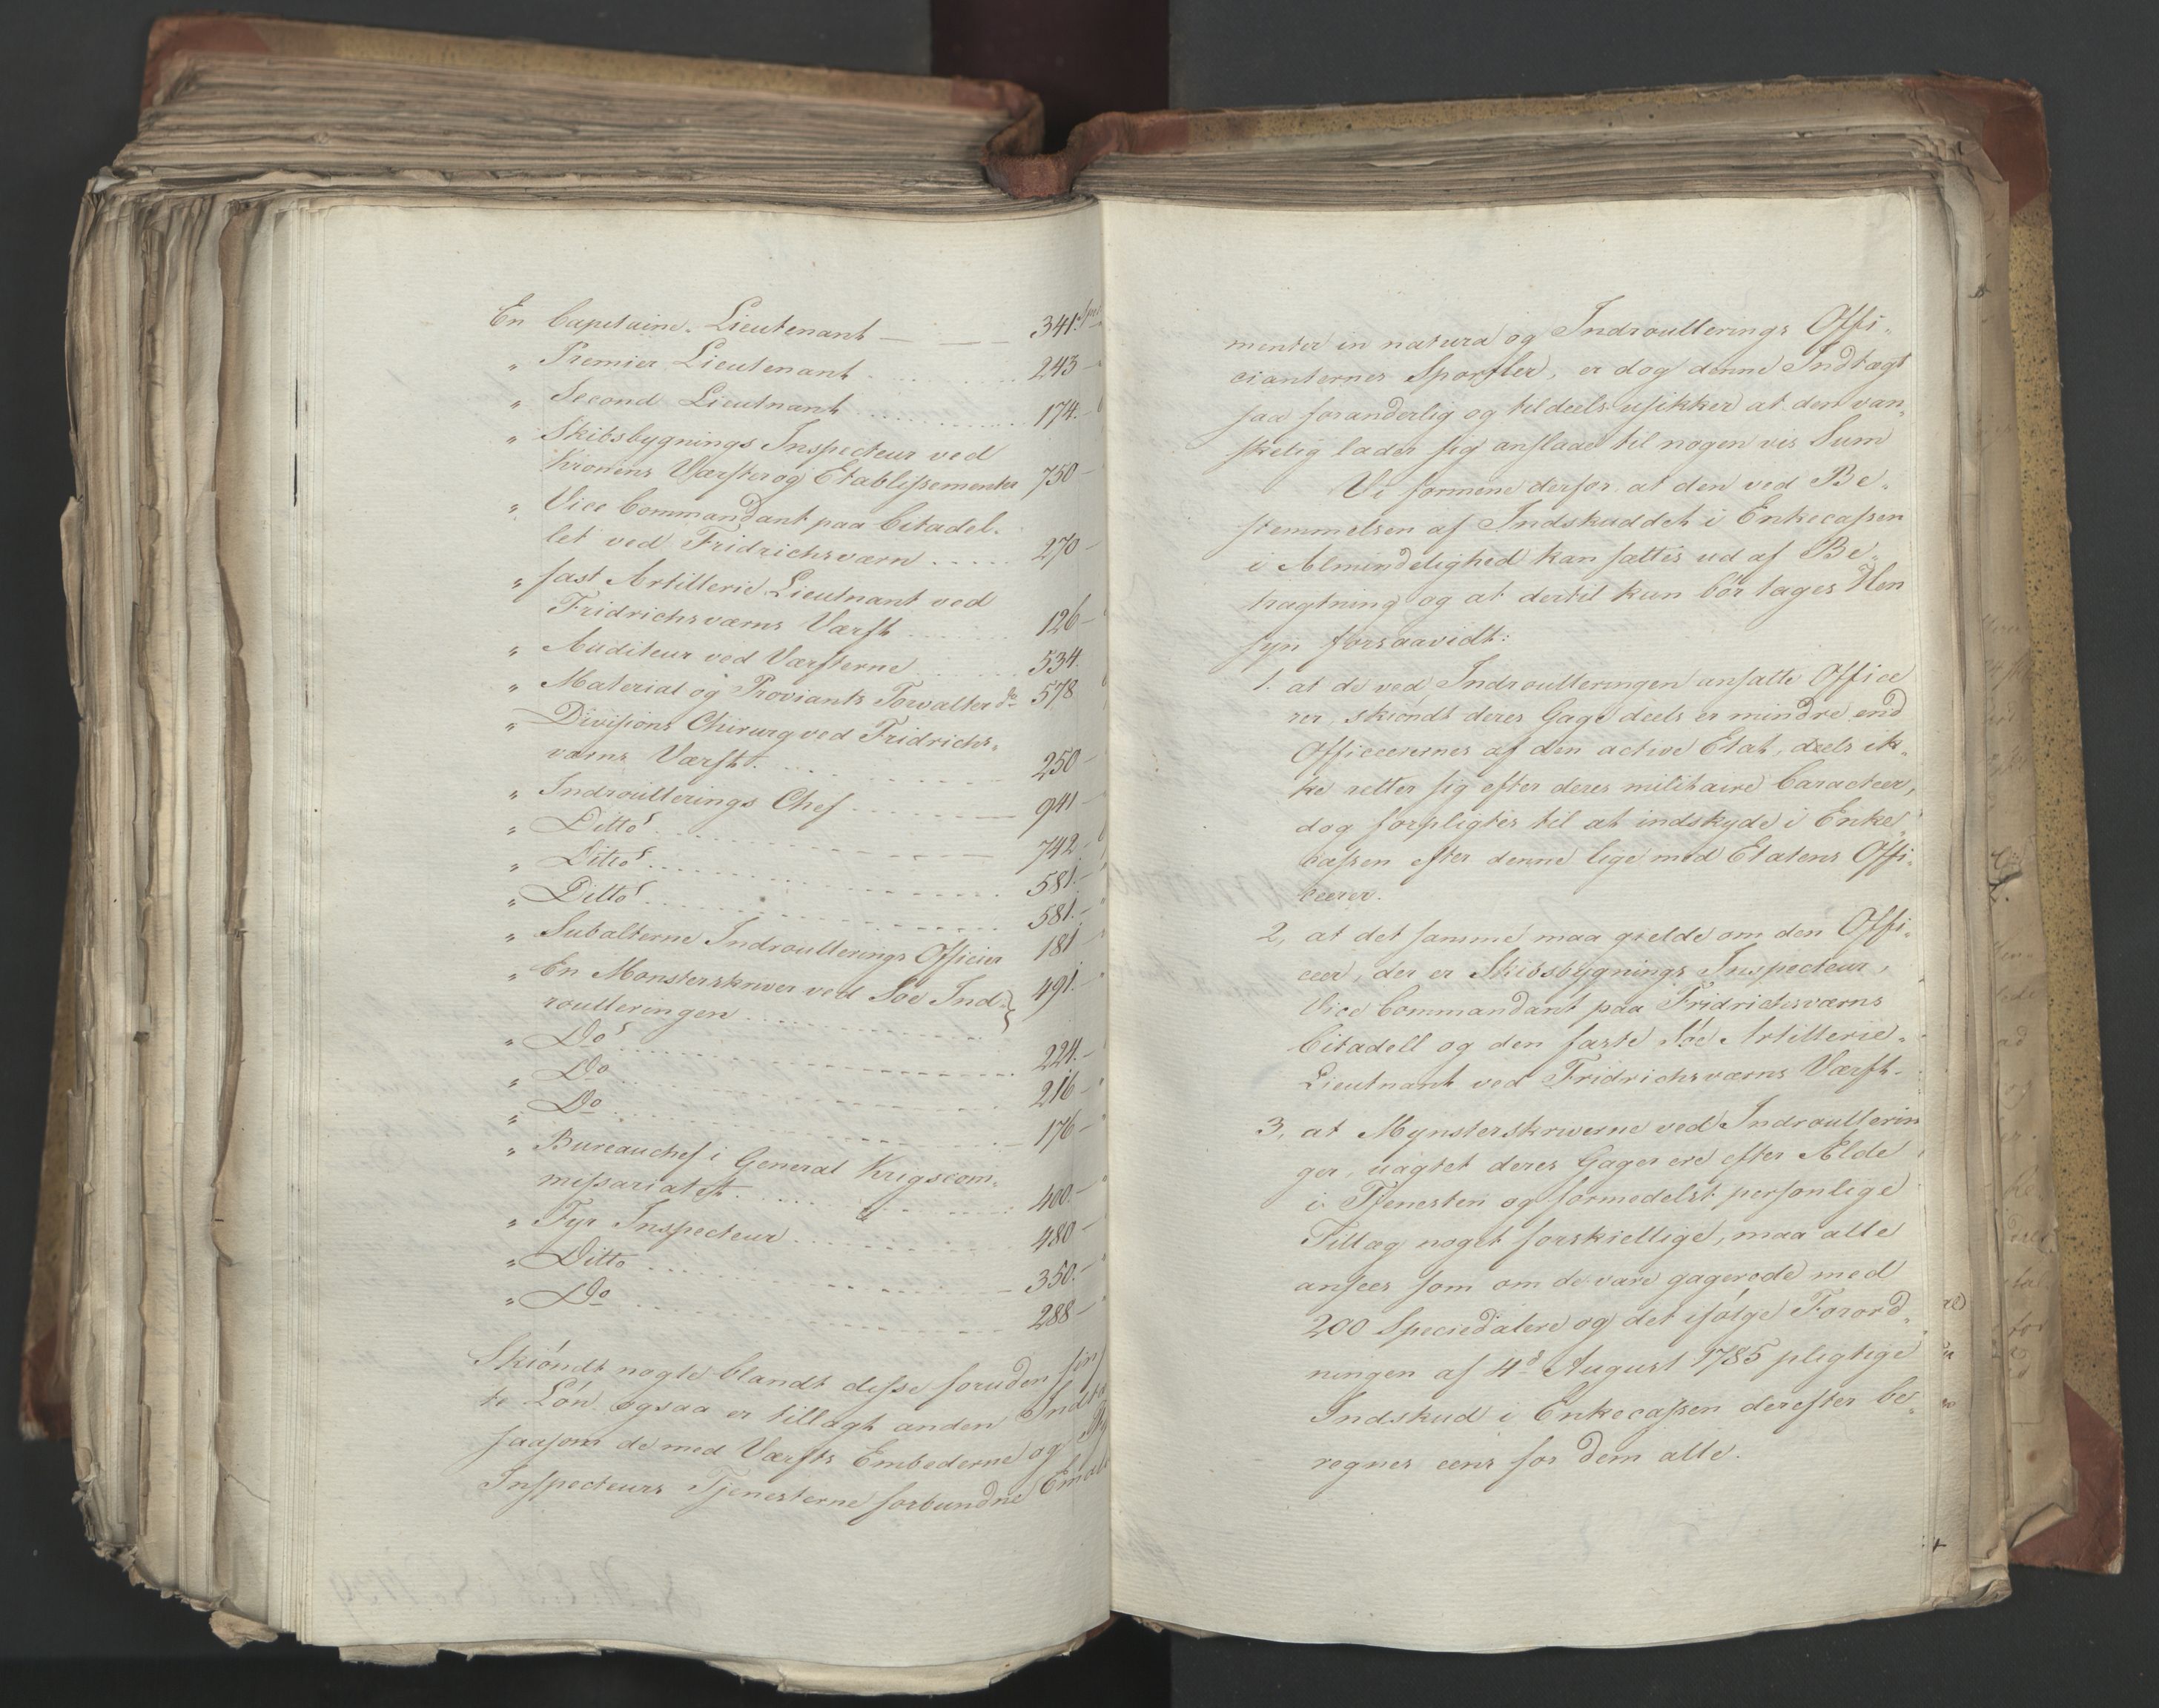 En Capitaine-Lieutenant — — — 341. Spec
" Premier Lieutenant . . . . . . . . 243 —
" Second Lieutnant . . . . . . . . . 174. —
" Skibsbygnings Inspecteur ved
Kronens Værfter og Etablissementer 750 —
" Vice Commandant paa Citadel-
let ved Fridrichsværn . . . . . 270 —
" fast Artillerie Lieutnant ved
Fridrichsværns Værft . . . . . . 126 —
" Auditeur ved Værfterne . . . . . 534.
" Material og Proviants Forvalter do 578
" Divisions Chirurg ved Fridrichs-
værns Værft . . . . . . . . . 250 —
" Indroullerings Chef . . . . . — 941 —
" Ditto . . . . . . . . . 742 —
" Ditto . . . . . . . . . 581. —
" Ditto . . . . . . . . . 581. —
" Subalterne Indroullerings Officier 181 —
" En Monsterskriver ved Søe Ind- } 491. —
roulleringen . . . . . . . . .
" Do . . . . . . . . . 224. —
" Do . . . . . . . . . 216 —
" Do . . . . . . . . . 176 —
" Bureauchef i General Krigscom-
missariatet . . . . . . . . . 400. —
" Fyr Inspecteur . . . . . . . . 480 —
" Ditto . . . . . . . . . 350. —
" Do . . . . . . . . . 288 —
Skiöndt nogle blandt disse foruden
te Lön ogsaa er tillagt anden
saasom de med Værfts Embederne og
Inspecteurs Tjenesterne forbundne
menter in natura og Indroullerings Offi-
cianternes Sportler, er dog denne Indtægt
saa foranderlig og tildeels usikker at den van-
skelig lader sig anslaae til nogen vis Sum
Vi formene derfor at den ved Be-
stemmelsen af Indskuddet i Enkecassen
i Almindelighed kan sættes ud af Be-
tragtning og at dertil kun bör tages Hen
syn forsaavidt:
1. at de ved Indroulleringen ansatte Office
rer, skiöndt deres Gage deels er mindre end
Officerernes af den active Etat, deels ik-
ke retter sig efter deres militaire Caracteer,
dog forpligtes til at indskyde i Enke-
cassen efter denne lige med Etatens Offi-
ceerer.
2, at det samme maa gielde om den Offi-
ceer, der er Skibsbygnings Inspecteur,
Vice Commandant paa Fridrichsværns
Citadell og den faste Søe Artillerie-
Lieutnant ved Fridrichsværns Værft.
3, at Mynsterskriverne ved Indroullerin
ger, uagtet deres Gager ere efter Ælde
i Tjenesten og formedelst personlige
Tillæg noget forskiellige, maa alle
ansees som om de vare gagerede med
200 Speciedalere og det ifölge Forord-
ningen af 4de August 1785 pligtige
Indskud i Enkecassen derefter be-
regnes eens for dem alle.